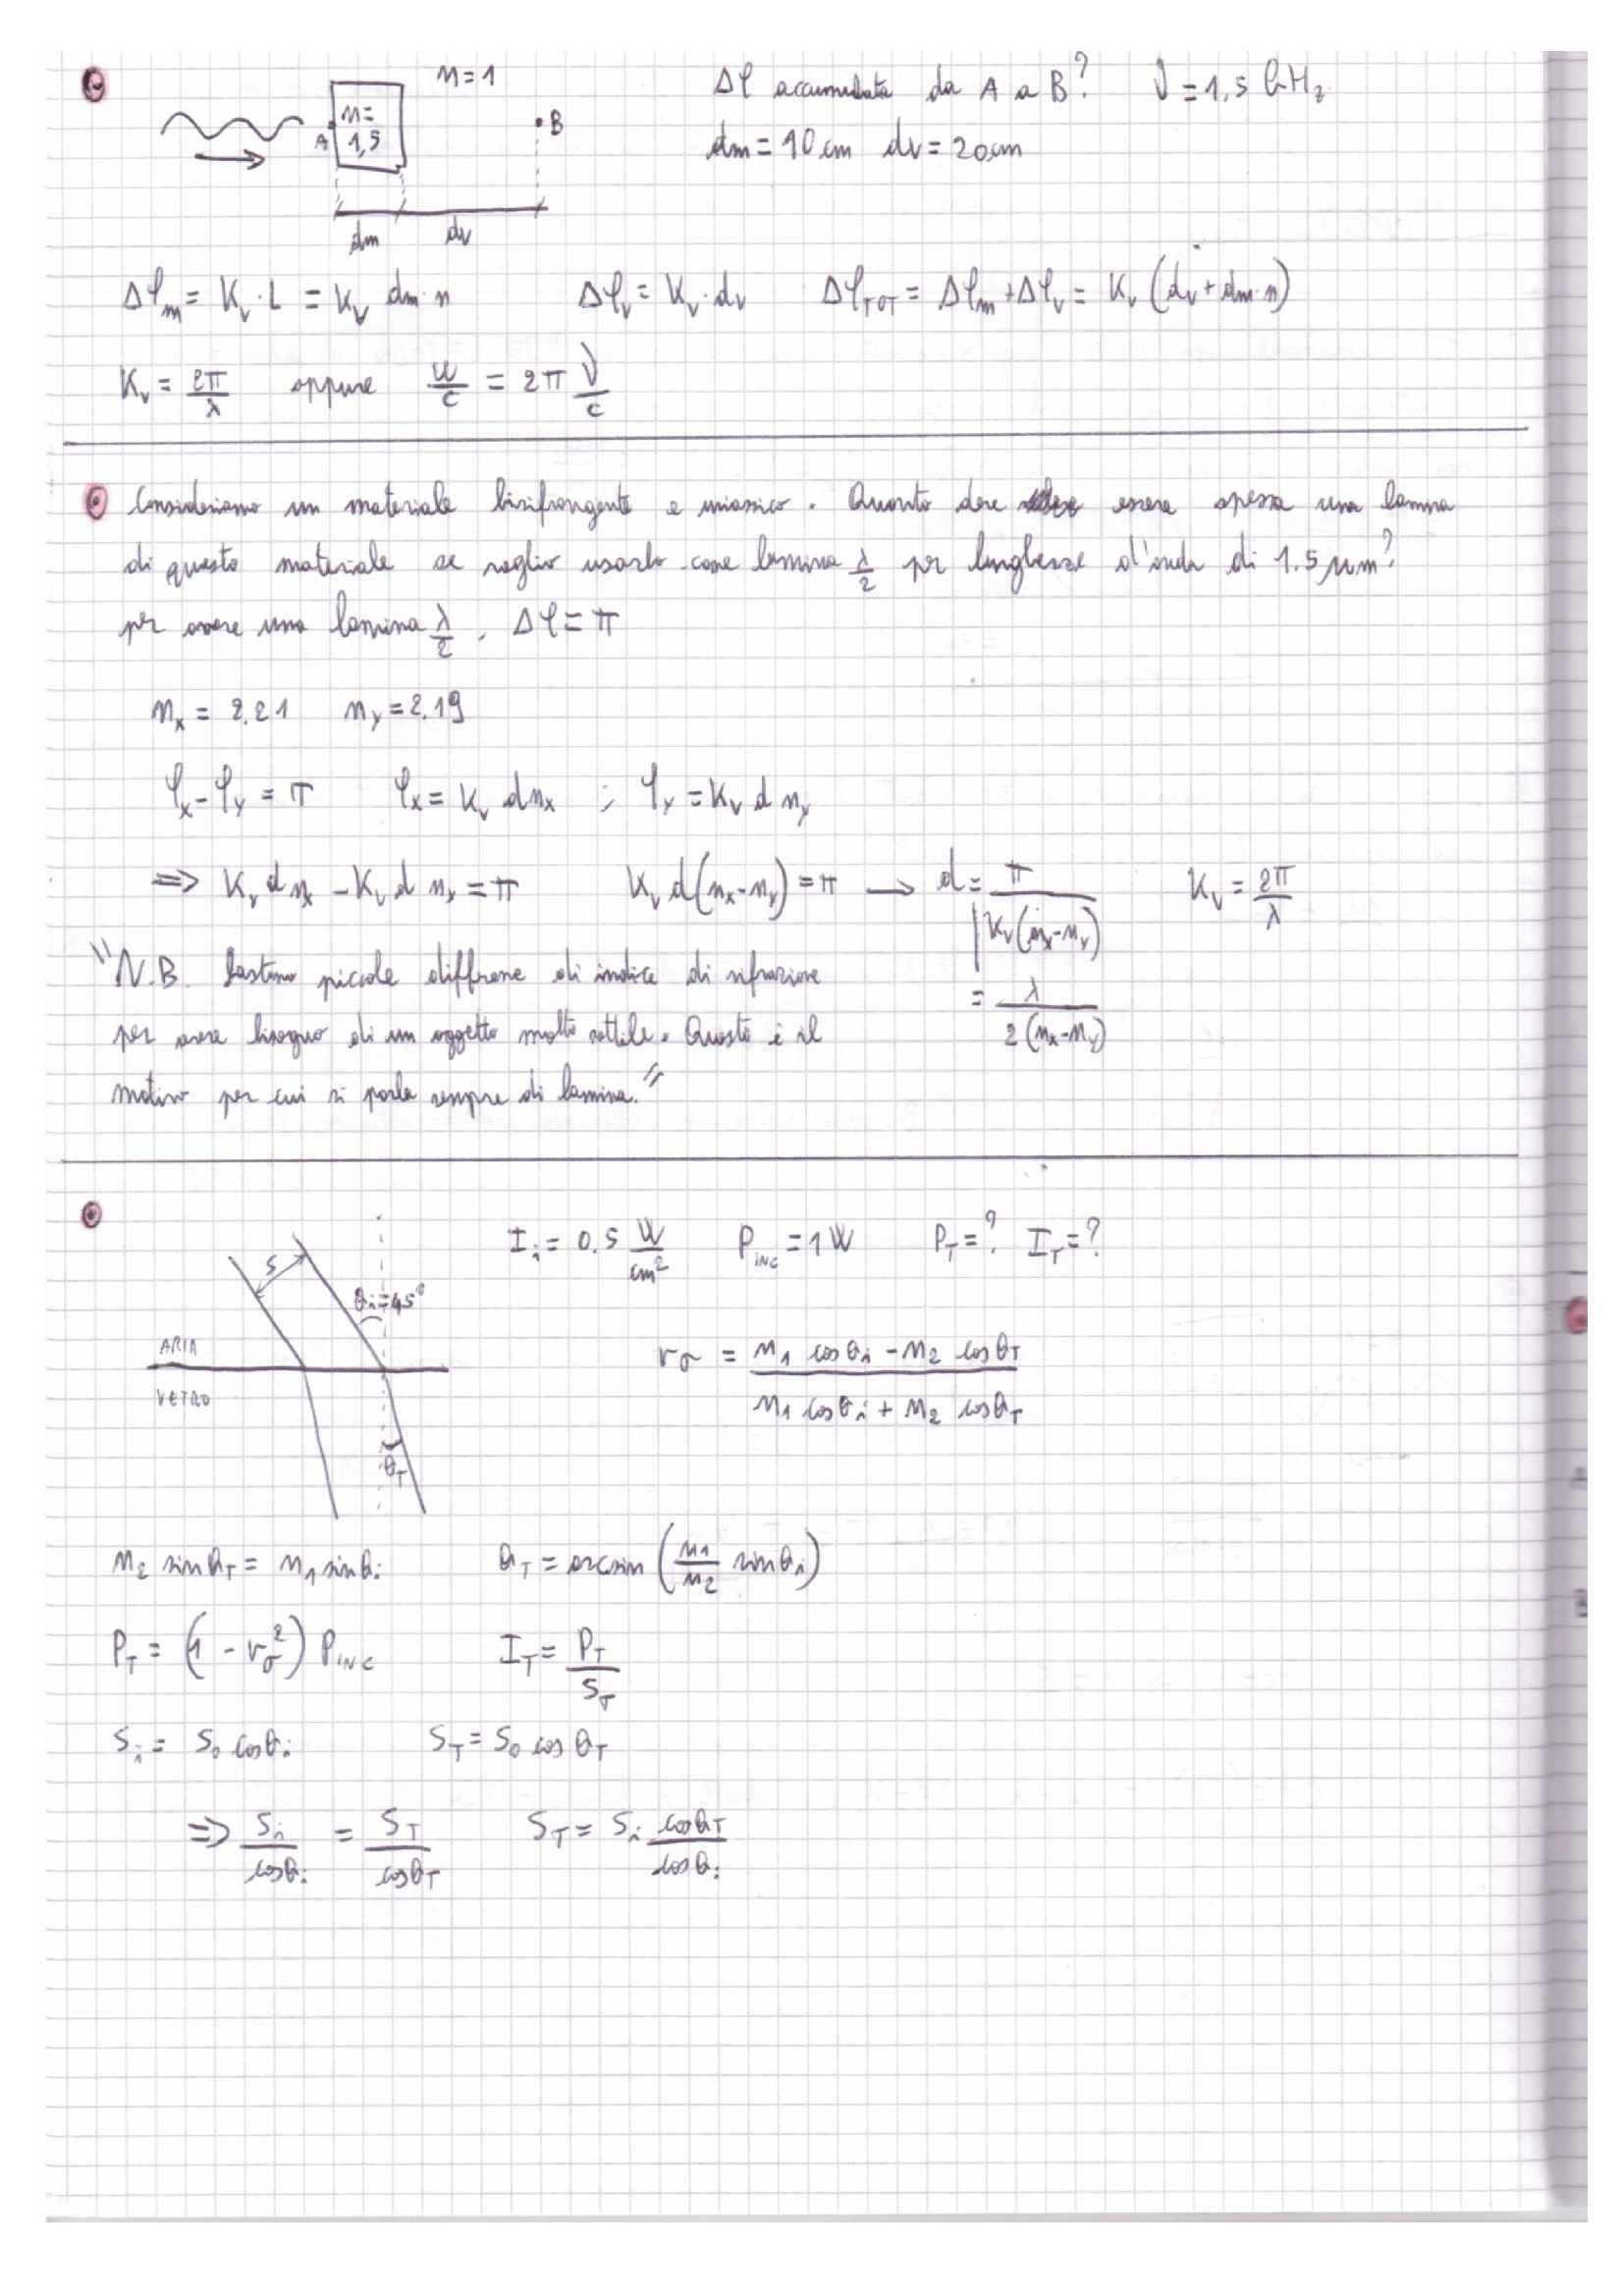 n=1 Δφ accumulata da A a B? ν=1,5 GHz
n=
1,5
A
B
dm=10cm dv=20cm
dm dv
Δφm = Kv·L = Kv dm·n Δφv = Kv·dv ΔφTOT = Δφm+Δφv = Kv (dv+dm·n)
Kv = 2π/λ oppure ω/c = 2π ν/c
Consideriamo un materiale birifrangente e uniassico. Quanto deve essere spessa una lamina
di questo materiale se voglio usarlo come lamina λ/2 per lunghezze d'onda di 1.5 μm?
per avere una lamina λ/2, Δφ=π
nx = 2.21 ny = 2.19
φx-φy = π φx = Kv d nx ; φy = Kv d ny
=> Kv d nx - Kv d ny = π Kv d(nx-ny) = π → d = π/|Kv(nx-ny) Kv = 2π/λ
= λ/2(nx-ny)
"N.B. bastano piccole diffrene di indice di rifrazione
per avere bisogno di un oggetto molto sottile. Questo è il
motivo per cui si parla sempre di lamina."
Ii = 0.5 W/cm² PINC = 1W PT=? IT=?
S
θi=45°
ARIA
VETRO
θT
rσ = n1 cosθi - n2 cosθT / n1 cosθi + n2 cosθT
n2 sinθT = n1 sinθi θT = arcsin (n1/n2 sinθi)
PT = (1 - rσ²) PINC IT = PT/ST
Si = S0 cosθi ST = S0 cos θT
=> Si/cosθi = ST/cosθT ST = Si cosθT/cosθi